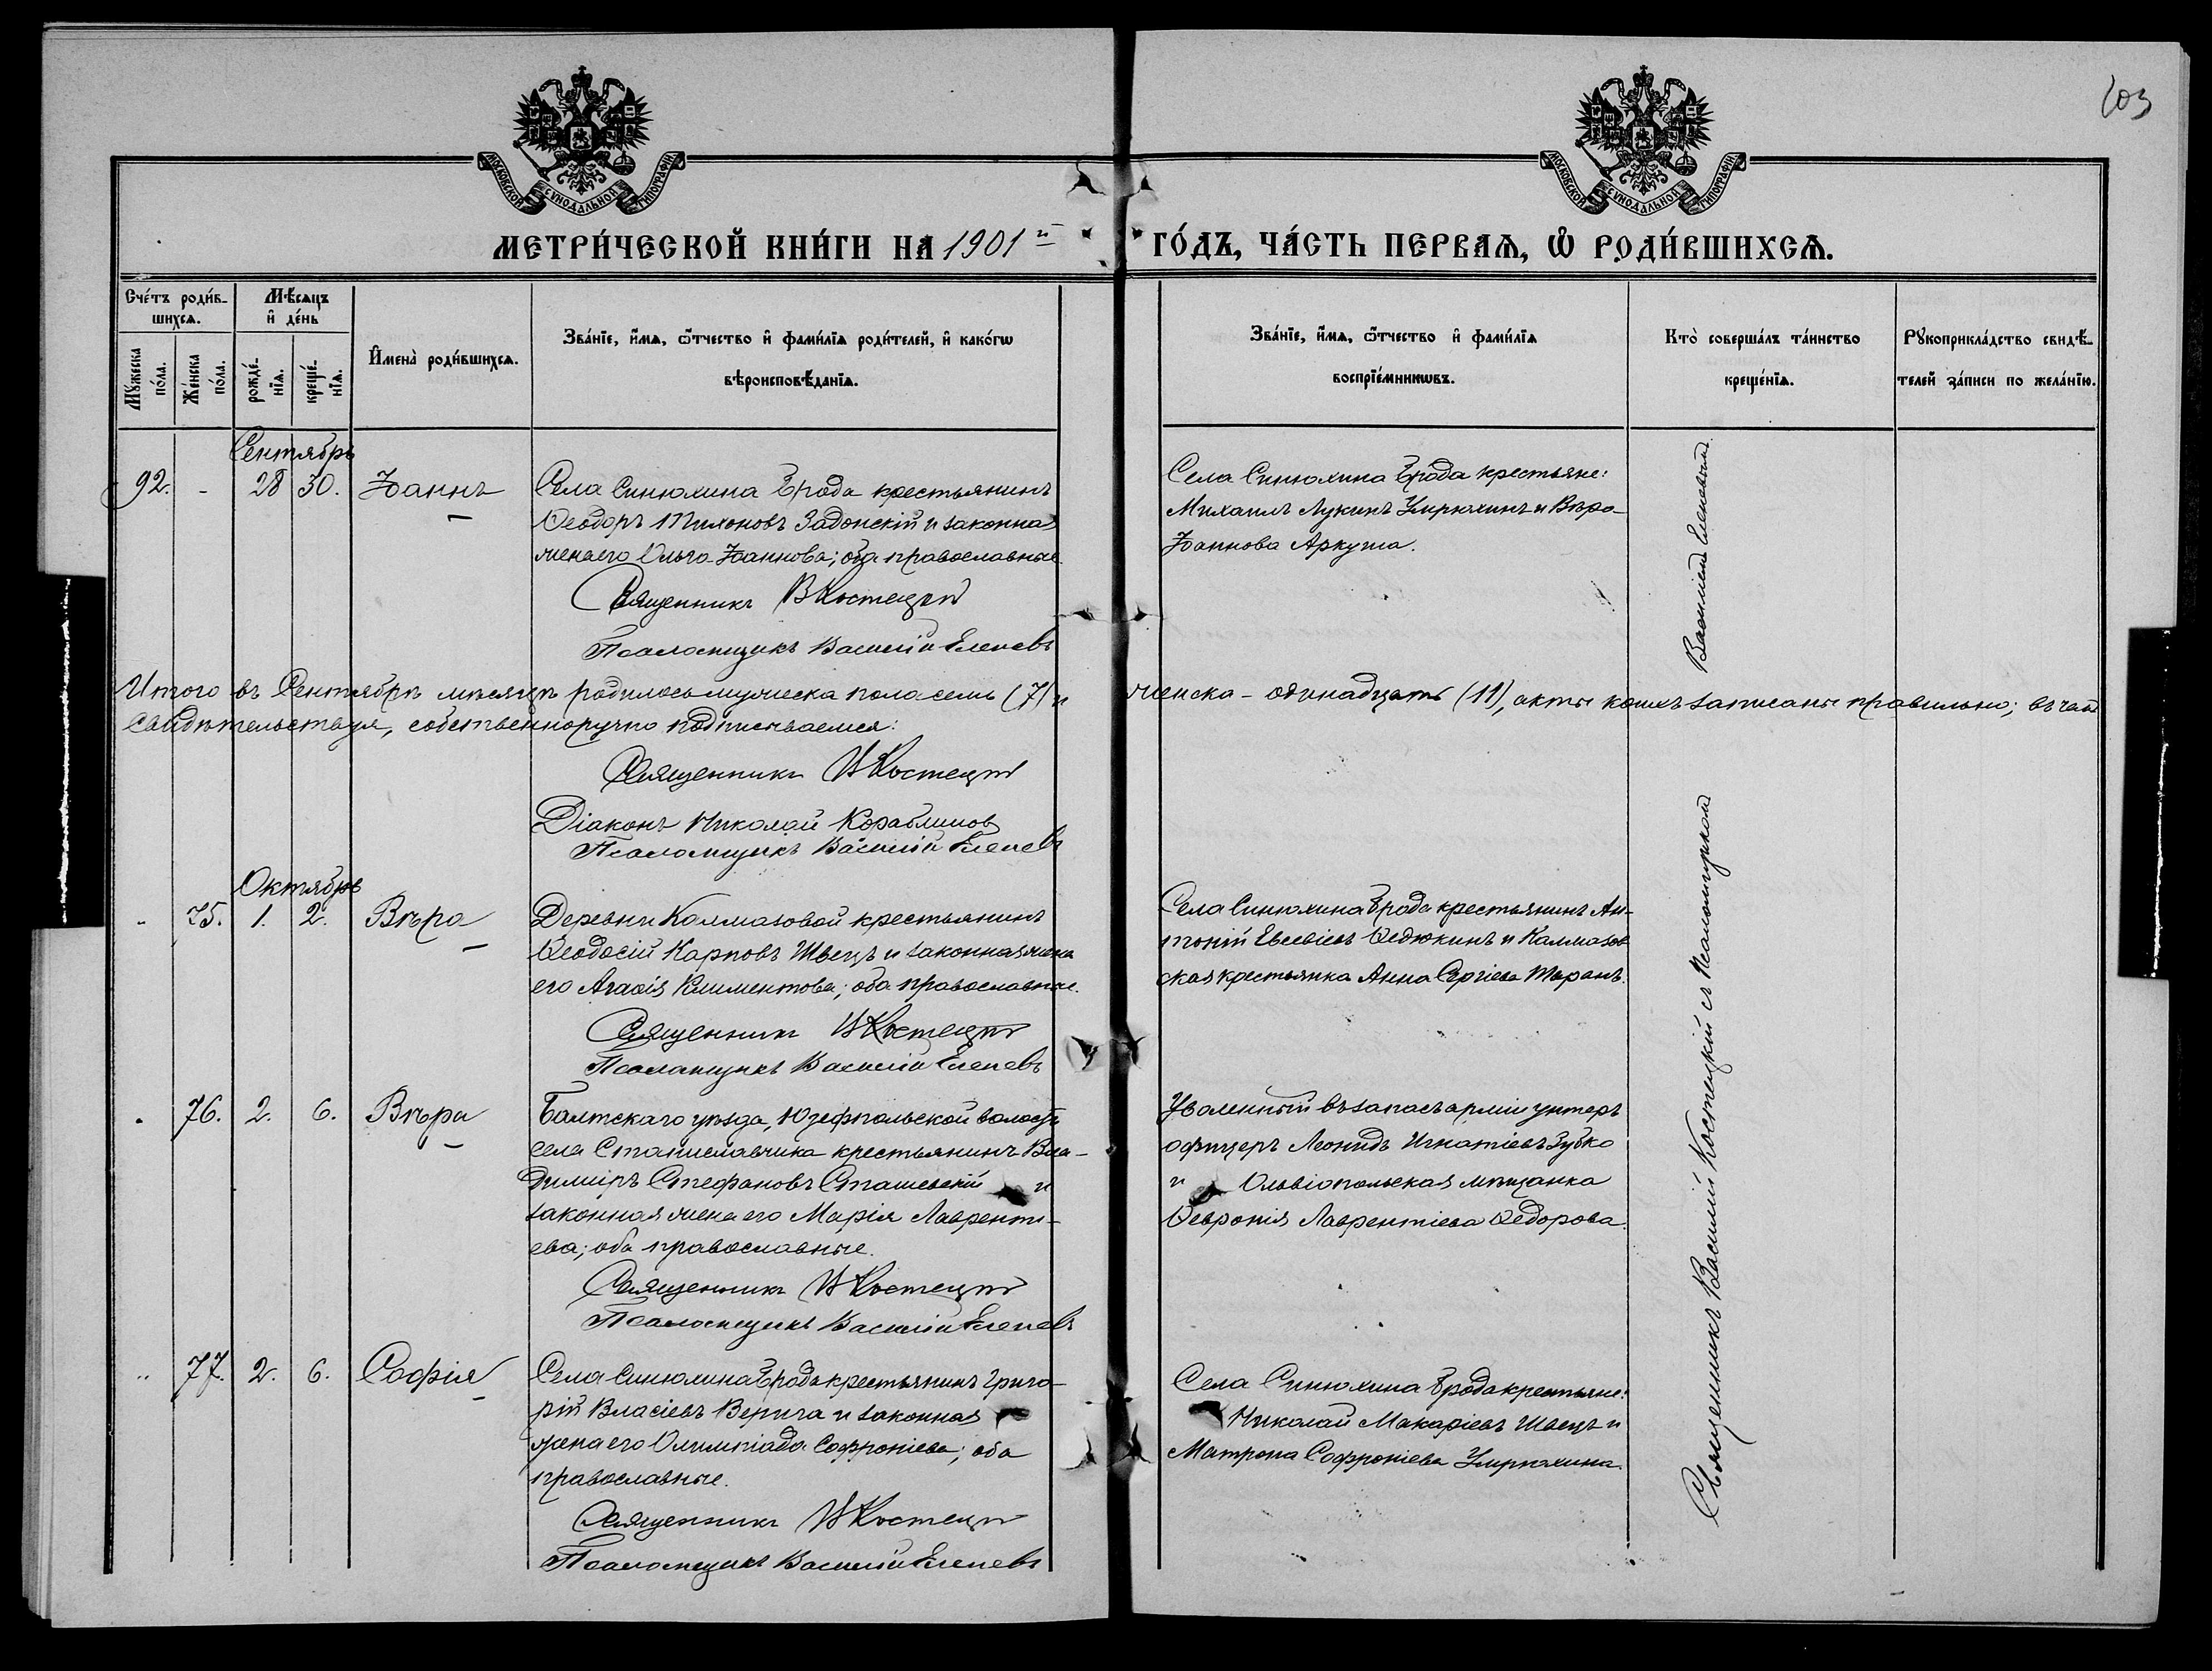 103
МОСКОВСКОЙ СѴНОДАЛЬНОЙ ТИПОГРАФІИ
МОСКОВСКОЙ СѴНОДАЛЬНОЙ ТИПОГРАФІИ
МЕТРИ́ЧЕСКОЙ КНИ́ГИ НА 1901 й ГО́ДЪ, ЧА́СТЬ ПЕРВАЯ, Ѡ РОДИ́ВШИХСЯ.
Сче́тъ роди́в-
шихся.
Мꙋжеска по́ла.
Же́нска по́ла.
Мѣ́сяцъ
и҆ де́нь
рожде́-
нїя.
креще́-
нїя.
И҆мена̀ роди́вшихся.
Зва́нїе, и҆́мя, ѻ҆́тчество и҆ фами́лїя роди́телей, и҆ како́гѡ
вѣроисповѣ́данїя.
Зва́нїе, и҆́мя, ѻ҆́тчество и҆ фами́лїя
воспрїе́мникѡвъ.
Кто̀ соверша́лъ та́инство
креще́нїя.
Рꙋкоприкла́дство свидѣ́-
телей за́писи по жела́нїю.
Сентябрь
92. - 28 30. Іоаннъ
Села Синюхина Брода крестьянинъ
Ѳеодоръ Тихоновъ Задонскій и законная
жена его Ольга Іоаннова; оба православные.
Священникъ В Костецкій
Псаломщикъ Василій Еленевъ
Села Синюхина Брода крестьяне:
Михаилъ Лукинъ Умрюхинъ и Вѣра
Іоаннова Аркуша.
Итого въ Сентябрѣ мѣсяцѣ родилось мужеска пола семь (7) и женска - одинадцать (11), акты коихъ записаны правильно; въ чемъ
свидѣтельствуя, собственноручно подписываемся:
Священникъ В Костецкій
Діаконъ Николай Кораблиновъ
Псаломщикъ Василій Еленевъ
Октябрь
" 75. 1. 2. Вѣра
Деревни Калмазовой крестьянинъ
Ѳеодосій Карповъ Швецъ и законная жена
его Агафія Климентова; оба православные.
Священникъ В Костецкій
Псаломщикъ Василій Еленевъ
Села Синюхина Брода крестьянинъ Ан-
тоній Евсевіевъ Ѳедюкинъ и Калмазов
ская крестьянка Анна Сергіева Таранъ.
" 76. 2. 6. Вѣра
Балтскаго уѣзда, Юзефпольской волости
села Станиславчика крестьянинъ Вла-
димиръ Стефановъ Сташевскій и
законная жена его Марія Лавренті-
ева; оба православные.
Священникъ В Костецкій
Псаломщикъ Василій Еленевъ
Уволенный въ запасъ арміи унтеръ
офицеръ Леонидъ Игнатіевъ Зубко
и Ольвіопольская мѣщанка
Ѳевронія Лаврентіева Ѳедорова.
" 77. 2. 6. Софія
Села Синюхина Брода крестьянинъ Григо-
рій Власіевъ Верича и законная
жена его Олимпіада Софроніева; оба
православные.
Священникъ В Костецкій
Псаломщикъ Василій Еленевъ
Села Синюхина Брода крестьяне:
Николай Макаріевъ Швецъ и
Матрона Софроніева Умрюхина.
Священникъ Василій Костецкій съ Псаломщикомъ
Василіемъ Еленевымъ.